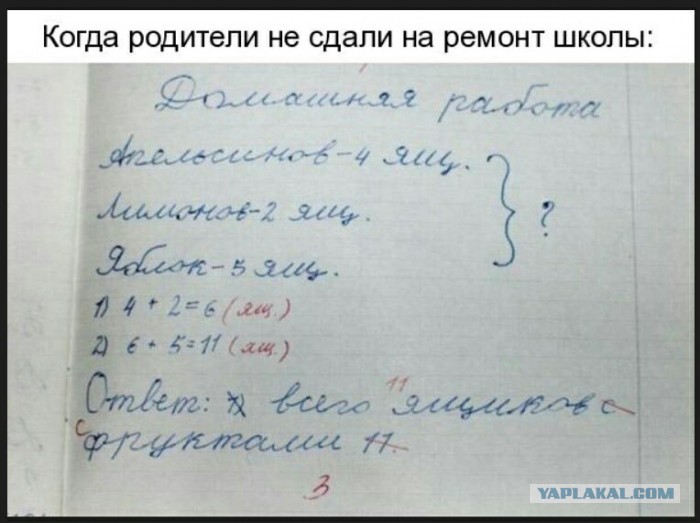 Когда родители не сдали на ремонт школы:
Домашняя работа
Апельсинов-4 ящ.
Лимонов-2 ящ. } ?
Яблок-5 ящ.
1) 4 + 2=6 (ящ.)
2) 6 + 5=11 (ящ.)
Ответ: всего 11 ящиков с
с фруктами 11.
3
YAPLAKAL.COM